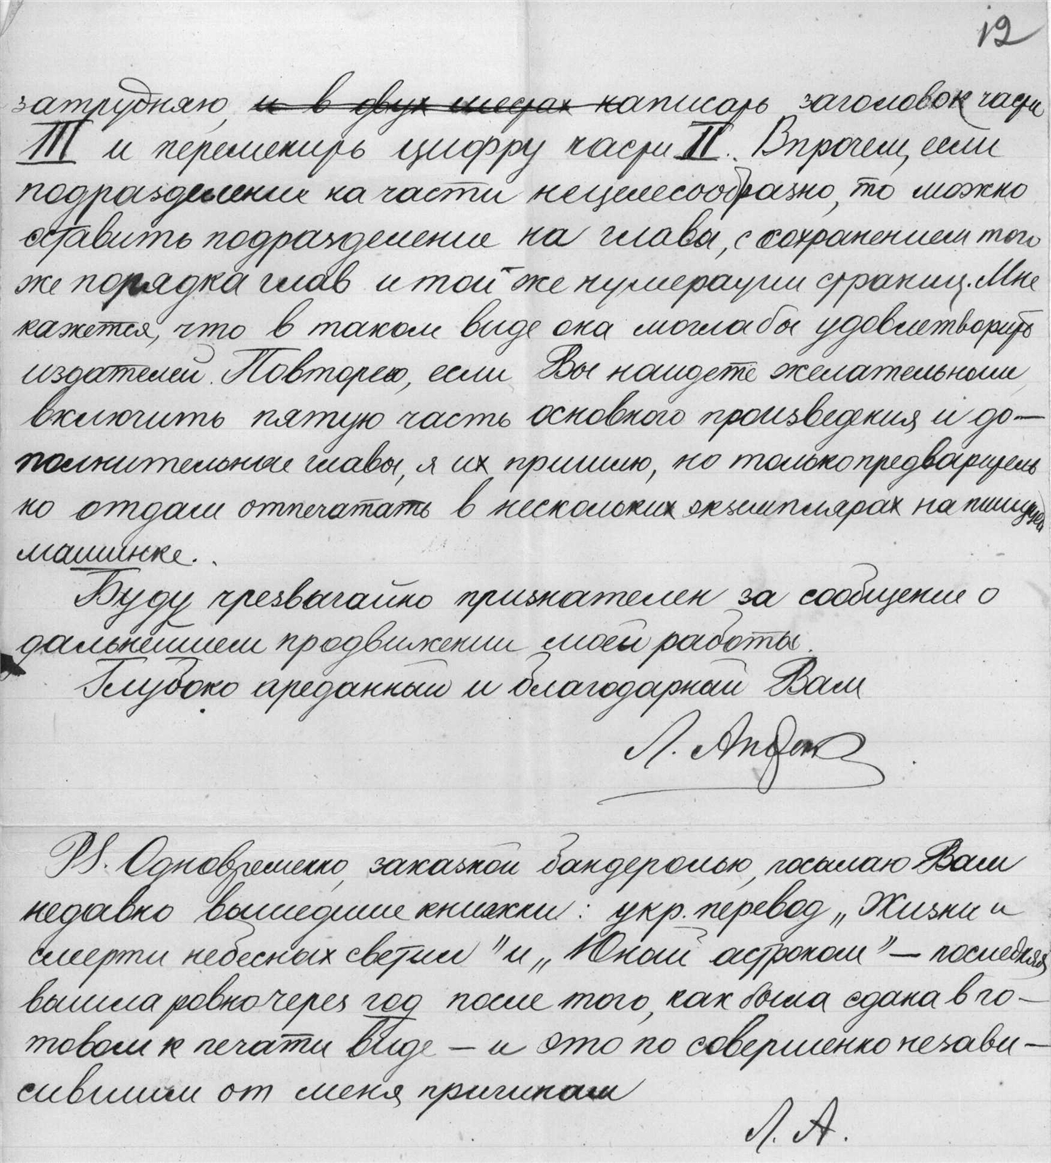 12
затрудняю, и в двух местах написать заголовок части
III и переменить цифру части II. Впрочем, если
подразделение на части нецелесообразно, то можно
оставить подразделение на главы, с сохранением того
же порядка глав и той же нумерации страниц. Мне
кажется, что в таком виде она могла бы удовлетворить
издателей. Повторяю, если Вы найдете желательным
включить пятую часть основного произведения и до-
полнительные главы, я их пришлю, но только предваритель
но отдам отпечатать в нескольких экземплярах на пишущей
машинке.
Буду чрезвычайно признателен за сообщение о
дальнейшем продвижении моей работы.
Глубоко преданный и благодарный Вам
Л.
PS. Одновременно, заказной бандеролью, посылаю Вам
недавно вышедшие книжки: укр. перевод „Жизни и
смерти небесных светил" и „Юный астроном" – последняя
вышла ровно через год после того, как была сдана в го-
товом к печати виде – и это по совершенно незави-
сившим от меня причинам
Л. А.